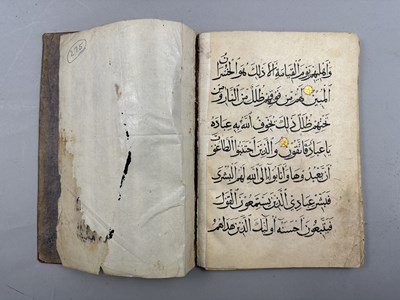 295
وأهليهم يوم القيامة ألا ذلك هو الخسران
المبين لهم من فوقهم ظلل من النار ومن
تحتهم ظلل ذلك يخوف الله به عباده
يا عباد فاتقون والذين اجتنبوا الطاغوت
أن يعبدوها وأنابوا إلى الله لهم البشرى
فبشر عبادي الذين يستمعون القول
فيتبعون أحسنه أولئك الذين هداهم